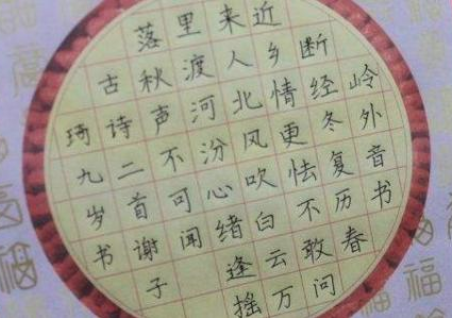 岭外音书
断经冬复历春
近乡情更怯不敢问
来人北风吹白云万
里渡河汾心绪逢摇
落秋声不可闻
古诗二首谢子
琦九岁书
福